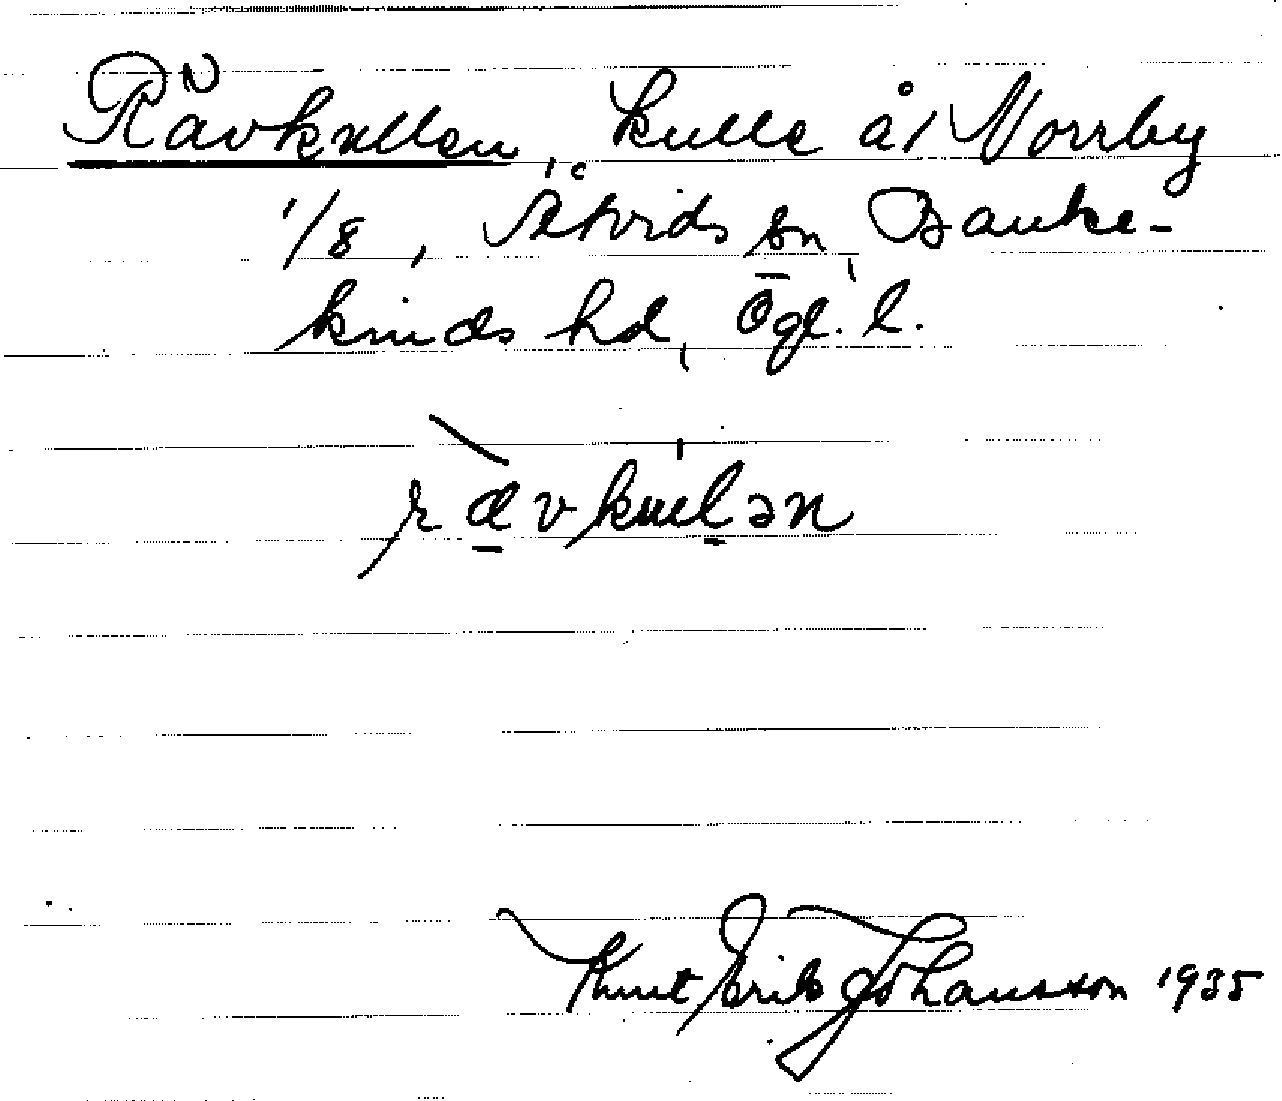 Rävkullen, kulle å 1 Norrby
1/8, Åtvids sn, Banke-
kinds hd, Ögl. l.
rävkulən
Knut Erik Johansson 1935